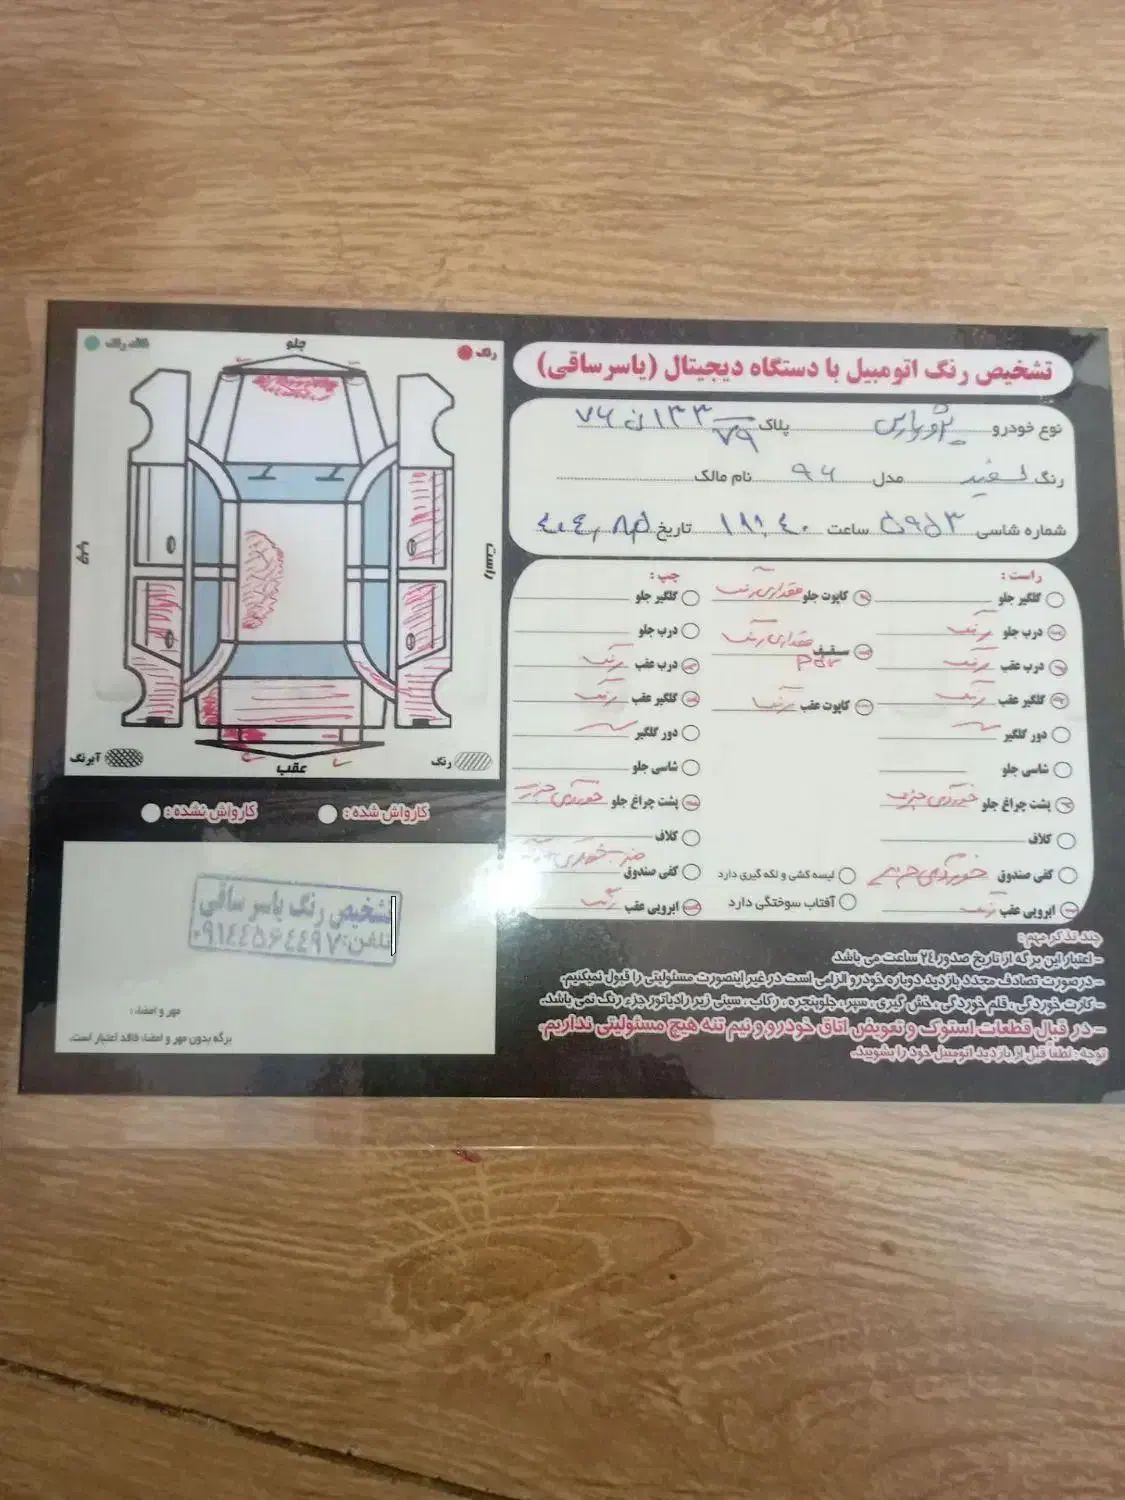 تشخیص رنگ اتومبیل با دستگاه دیجیتال (یاسر ساقی)
نوع خودرو پژو پارس پلاک ۷۶ ن ۱۳۳
۷۹
رنگ سفید مدل ۹۶ نام مالک
شماره شاسی ۵۹۵۳ ساعت ۱۸:۴۰ تاریخ
راست :
گلگیر جلو
درب جلو رنگ
درب عقب رنگ
گلگیر عقب رنگ
دور گلگیر
شاسی جلو
پشت چراغ جلو خوردگی جزیی
کلاف
کفی صندوق خوردگی جزیی
ابرویی عقب رنگ
کاپوت جلو مقداری رنگ
سقف مقداری رنگ
PDR
کاپوت عقب رنگ
لیسه کشی و لکه گیری دارد
آفتاب سوختگی دارد
چپ :
گلگیر جلو
درب جلو
درب عقب رنگ
گلگیر عقب رنگ
دور گلگیر
شاسی جلو
پشت چراغ جلو خوردگی جزیی
کلاف
کفی صندوق
ابرویی عقب رنگ
چند تذکر مهم :
- اعتبار این برگه از تاریخ صدور ۲۴ ساعت می باشد.
- در صورت تصادف مجدد بازدید دوباره خودرو الزامی است در غیر اینصورت مسئولیتی را قبول نمیکنیم.
- کارت خوردگی، قلم خوردگی، خش گیری، سپر، جلوپنجره، رکاب، سینی زیر رادیاتور جزء رنگ نمی باشد.
- در قبال قطعات استوک و تعویض اتاق خودرو و نیم تنه هیچ مسئولیتی نداریم.
توجه: لطفا قبل از بازدید اتومبیل خود را بشویید.
رنگ
فاقد رنگ
جلو
راست
چپ
عقب
رنگ
آبرنگ
کارواش شده :
کارواش نشده :
تشخیص رنگ یاسر ساقی
تلفن: ۰۹۱۴۴۵۶۴۴۹۷
مهر و امضاء :
برگه بدون مهر و امضاء فاقد اعتبار است.